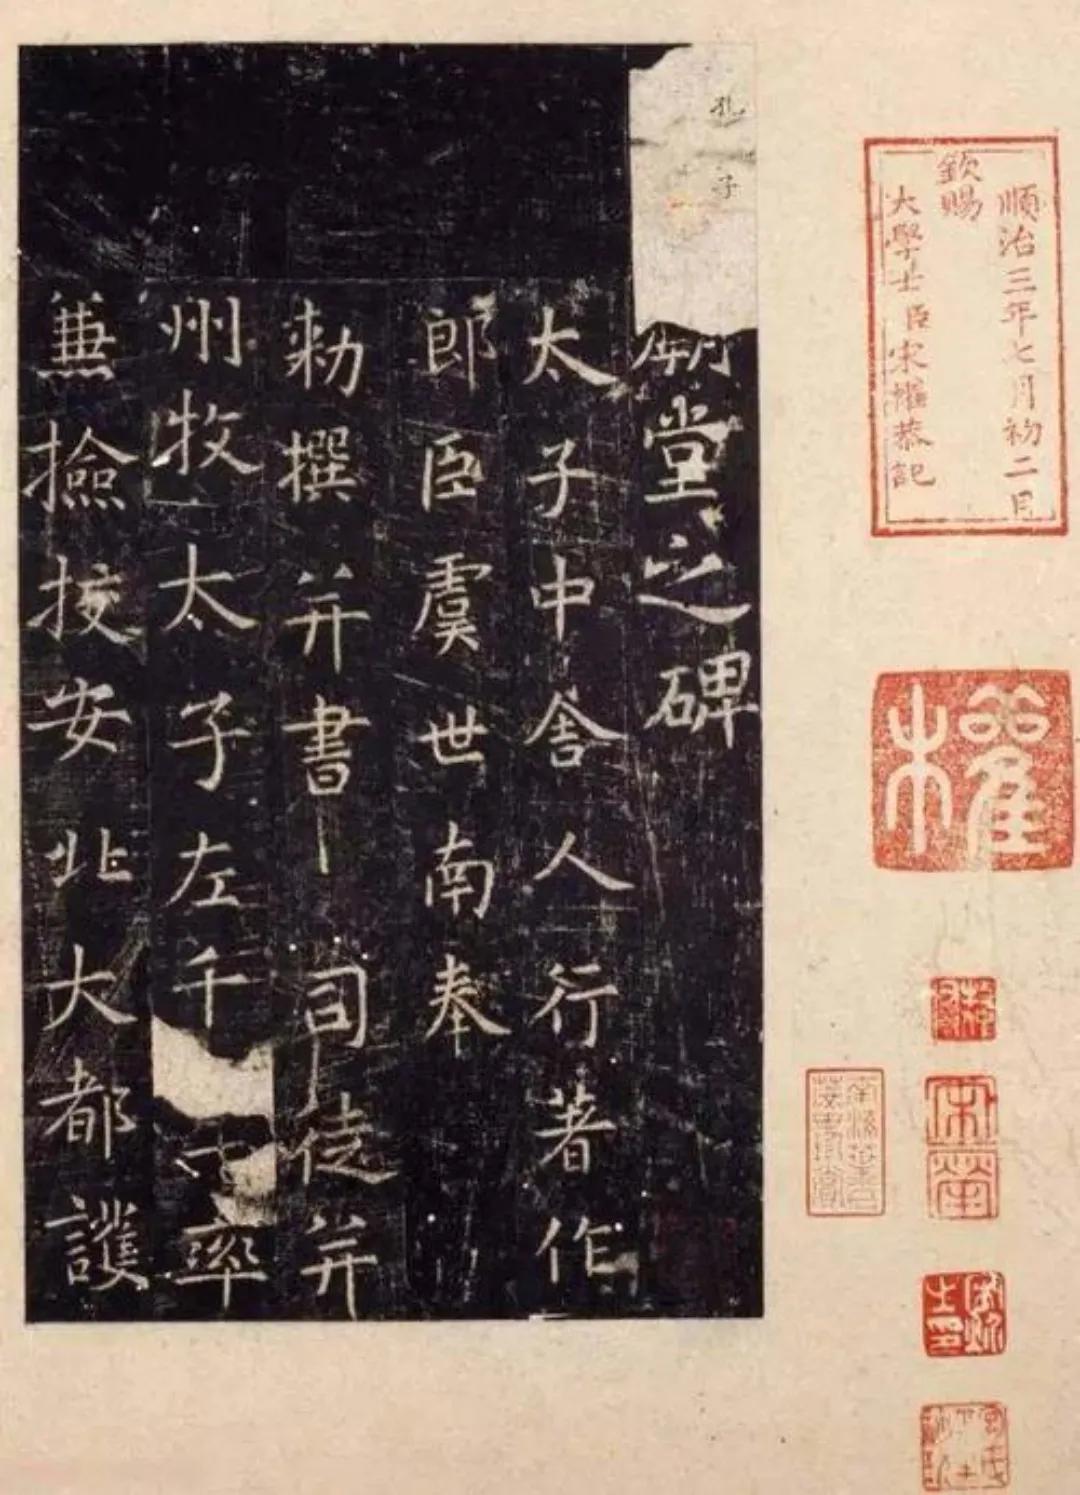 順治三年七月初二日
欽賜
大學士臣宋權恭記
權
宋犖
孔子廟堂之碑
太子中舍人行著作
郎臣虞世南奉
勅撰并書 司徒并
州牧太子左千率
兼撿挍安北大都護